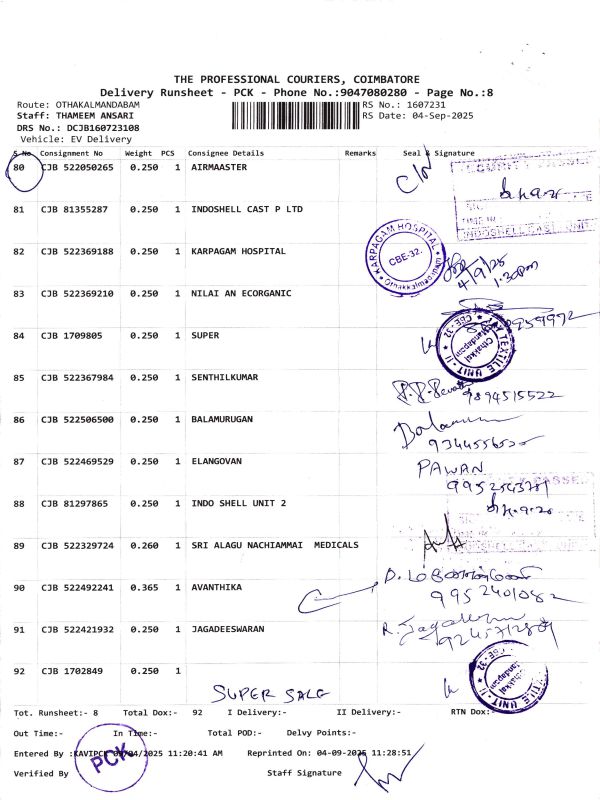 THE PROFESSIONAL COURIERS, COIMBATORE
Delivery Runsheet - PCK - Phone No.:9047080280 - Page No.:8
Route: OTHAKALMANDABAM RS No.: 1607231
Staff: THAMEEM ANSARI RS Date: 04-Sep-2025
DRS No.: DCJB160723108
Vehicle: EV Delivery
S No Consignment No Weight PCS Consignee Details Remarks Seal & Signature
80 CJB 522050265 0.250 1 AIRMAASTER
81 CJB 81355287 0.250 1 INDOSHELL CAST P LTD
INDOSHELL CAST UNIT
82 CJB 522369188 0.250 1 KARPAGAM HOSPITAL
KARPAGAM HOSPITAL CBE-32. Othakkalmandapam
4/9/25
1.30pm
83 CJB 522369210 0.250 1 NILAI AN ECORGANIC
84 CJB 1709805 0.250 1 SUPER
TEXTILE UNIT - II CBE-32
85 CJB 522367984 0.250 1 SENTHILKUMAR
9894515522
86 CJB 522506500 0.250 1 BALAMURUGAN
87 CJB 522469529 0.250 1 ELANGOVAN
PAWAN
88 CJB 81297865 0.250 1 INDO SHELL UNIT 2
89 CJB 522329724 0.260 1 SRI ALAGU NACHIAMMAI MEDICALS
90 CJB 522492241 0.365 1 AVANTHIKA
9952401082
91 CJB 522421932 0.250 1 JAGADEESWARAN
92 CJB 1702849 0.250 1
SUPER SALE
Tot. Runsheet:- 8 Total Dox:- 92 I Delivery:- II Delivery:- RTN Dox:-
Out Time:- In Time:- Total POD:- Delvy Points:-
Entered By :KAVIPCK 09/04/2025 11:20:41 AM Reprinted On: 04-09-2025 11:28:51
PCK
Verified By Staff Signature